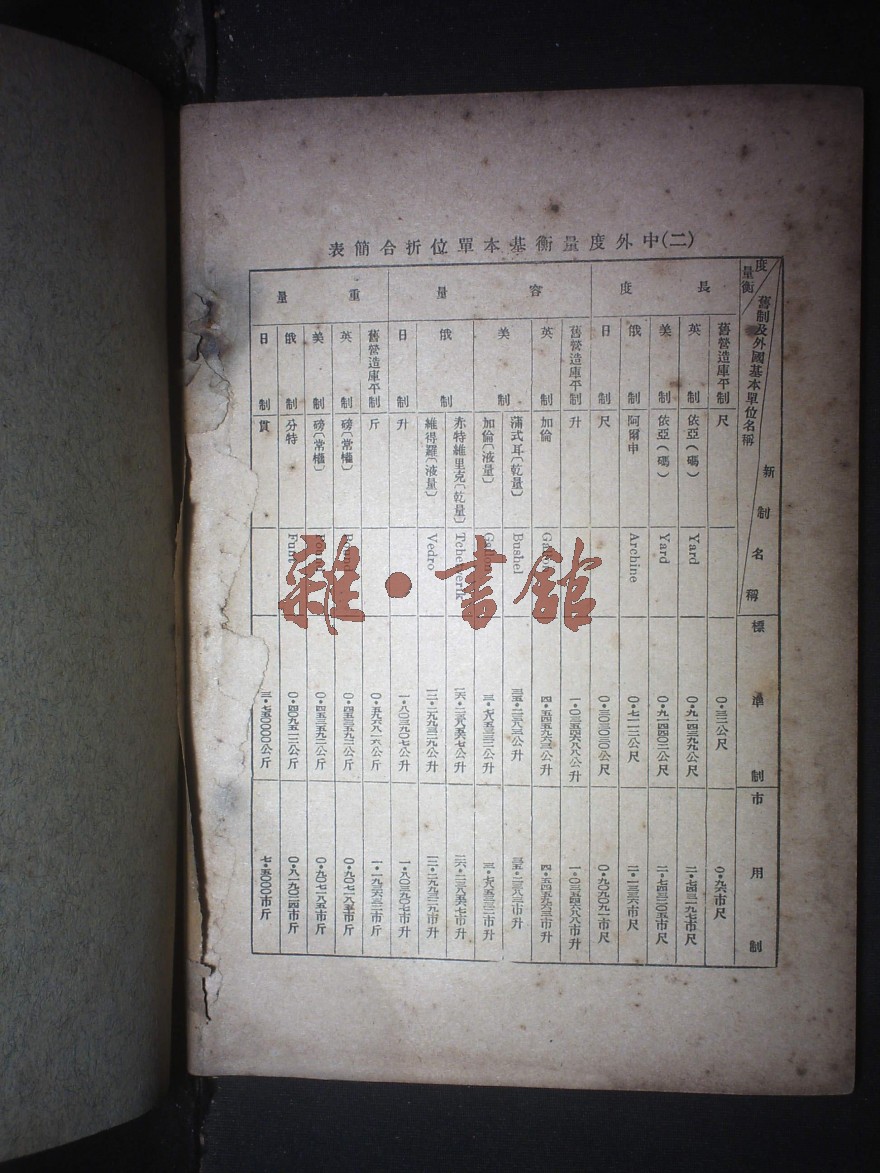 (二)中外度量衡基本單位折合簡表
度量衡
舊制及外國基本單位名稱
新制名稱
標準制
市用制
長度
舊營造庫平制 尺 〇·三二公尺 〇·九六市尺
英制 依亞(碼) Yard 〇·九一四三九九公尺 二·七四三一九七市尺
美制 依亞(碼) Yard 〇·九一四四〇二公尺 二·七四三二〇五市尺
俄制 阿爾申 Archine 〇·七一一二公尺 二·一三三六市尺
日制 尺 〇·三〇三〇三〇公尺 〇·九〇九〇九一市尺
容量
舊營造庫平制 升 一·〇三五四六八八公升 一·〇三五四六八八市升
英制 加倫 四·五四五九六三公升 四·五四五九六三市升
美制 蒲式耳〔乾量〕 Bushel 三五·二三八三公升 三五·二三八三市升
加倫〔液量〕 三·七八五三三二公升 三·七八五三三二市升
俄制 赤特維里克〔乾量〕 二六·二三八五六七公升 二六·二三八五六七市升
維得羅〔液量〕 Vedro 一二·二九九三二九公升 一二·二九九三二九市升
日制 升 一·八〇三九〇七公升 一·八〇三九〇七市升
重量
舊營造庫平制 斤 〇·五九六八一六公斤 一·一九三六三二市斤
英制 磅〔常權〕 〇·四五三五九二公斤 〇·九〇七一八五市斤
美制 磅〔常權〕 〇·四五三五九二公斤 〇·九〇七一八五市斤
俄制 分特 〇·四〇九五一二公斤 〇·八一九〇二四市斤
日制 貫 三·七五〇〇〇〇公斤 七·五〇〇〇市斤
雜·書館